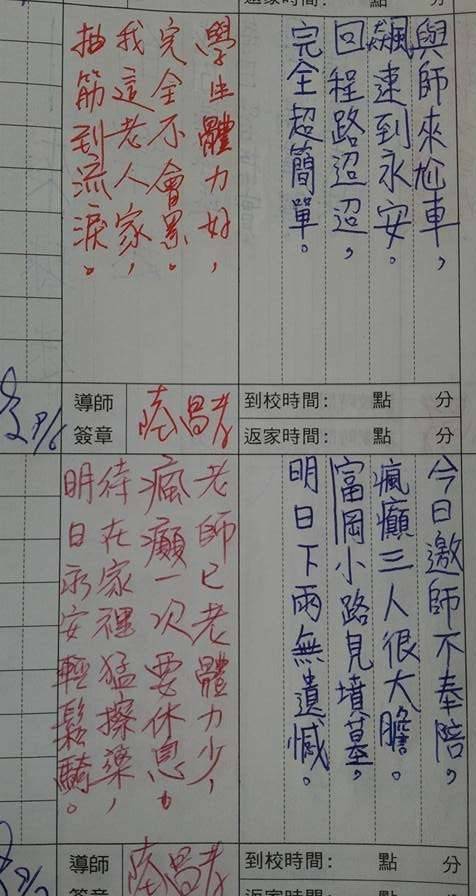 返家時間： 點 分
與師來尬車，
飆速到永安。
回程路迢迢，
完全超簡單。
學生體力好，
完全不會累。
我這老人家，
抽筋到流淚。
到校時間： 點 分
返家時間： 點 分
導師
簽章
今日邀師不奉陪，
瘋癲三人很大膽。
富岡小路見墳墓，
明日下雨無遺憾。
老師已老體力少，
瘋癲一次要休息。
待在家裡猛擦藥，
明日永安輕鬆騎。
到校時間： 點 分
導師
簽章